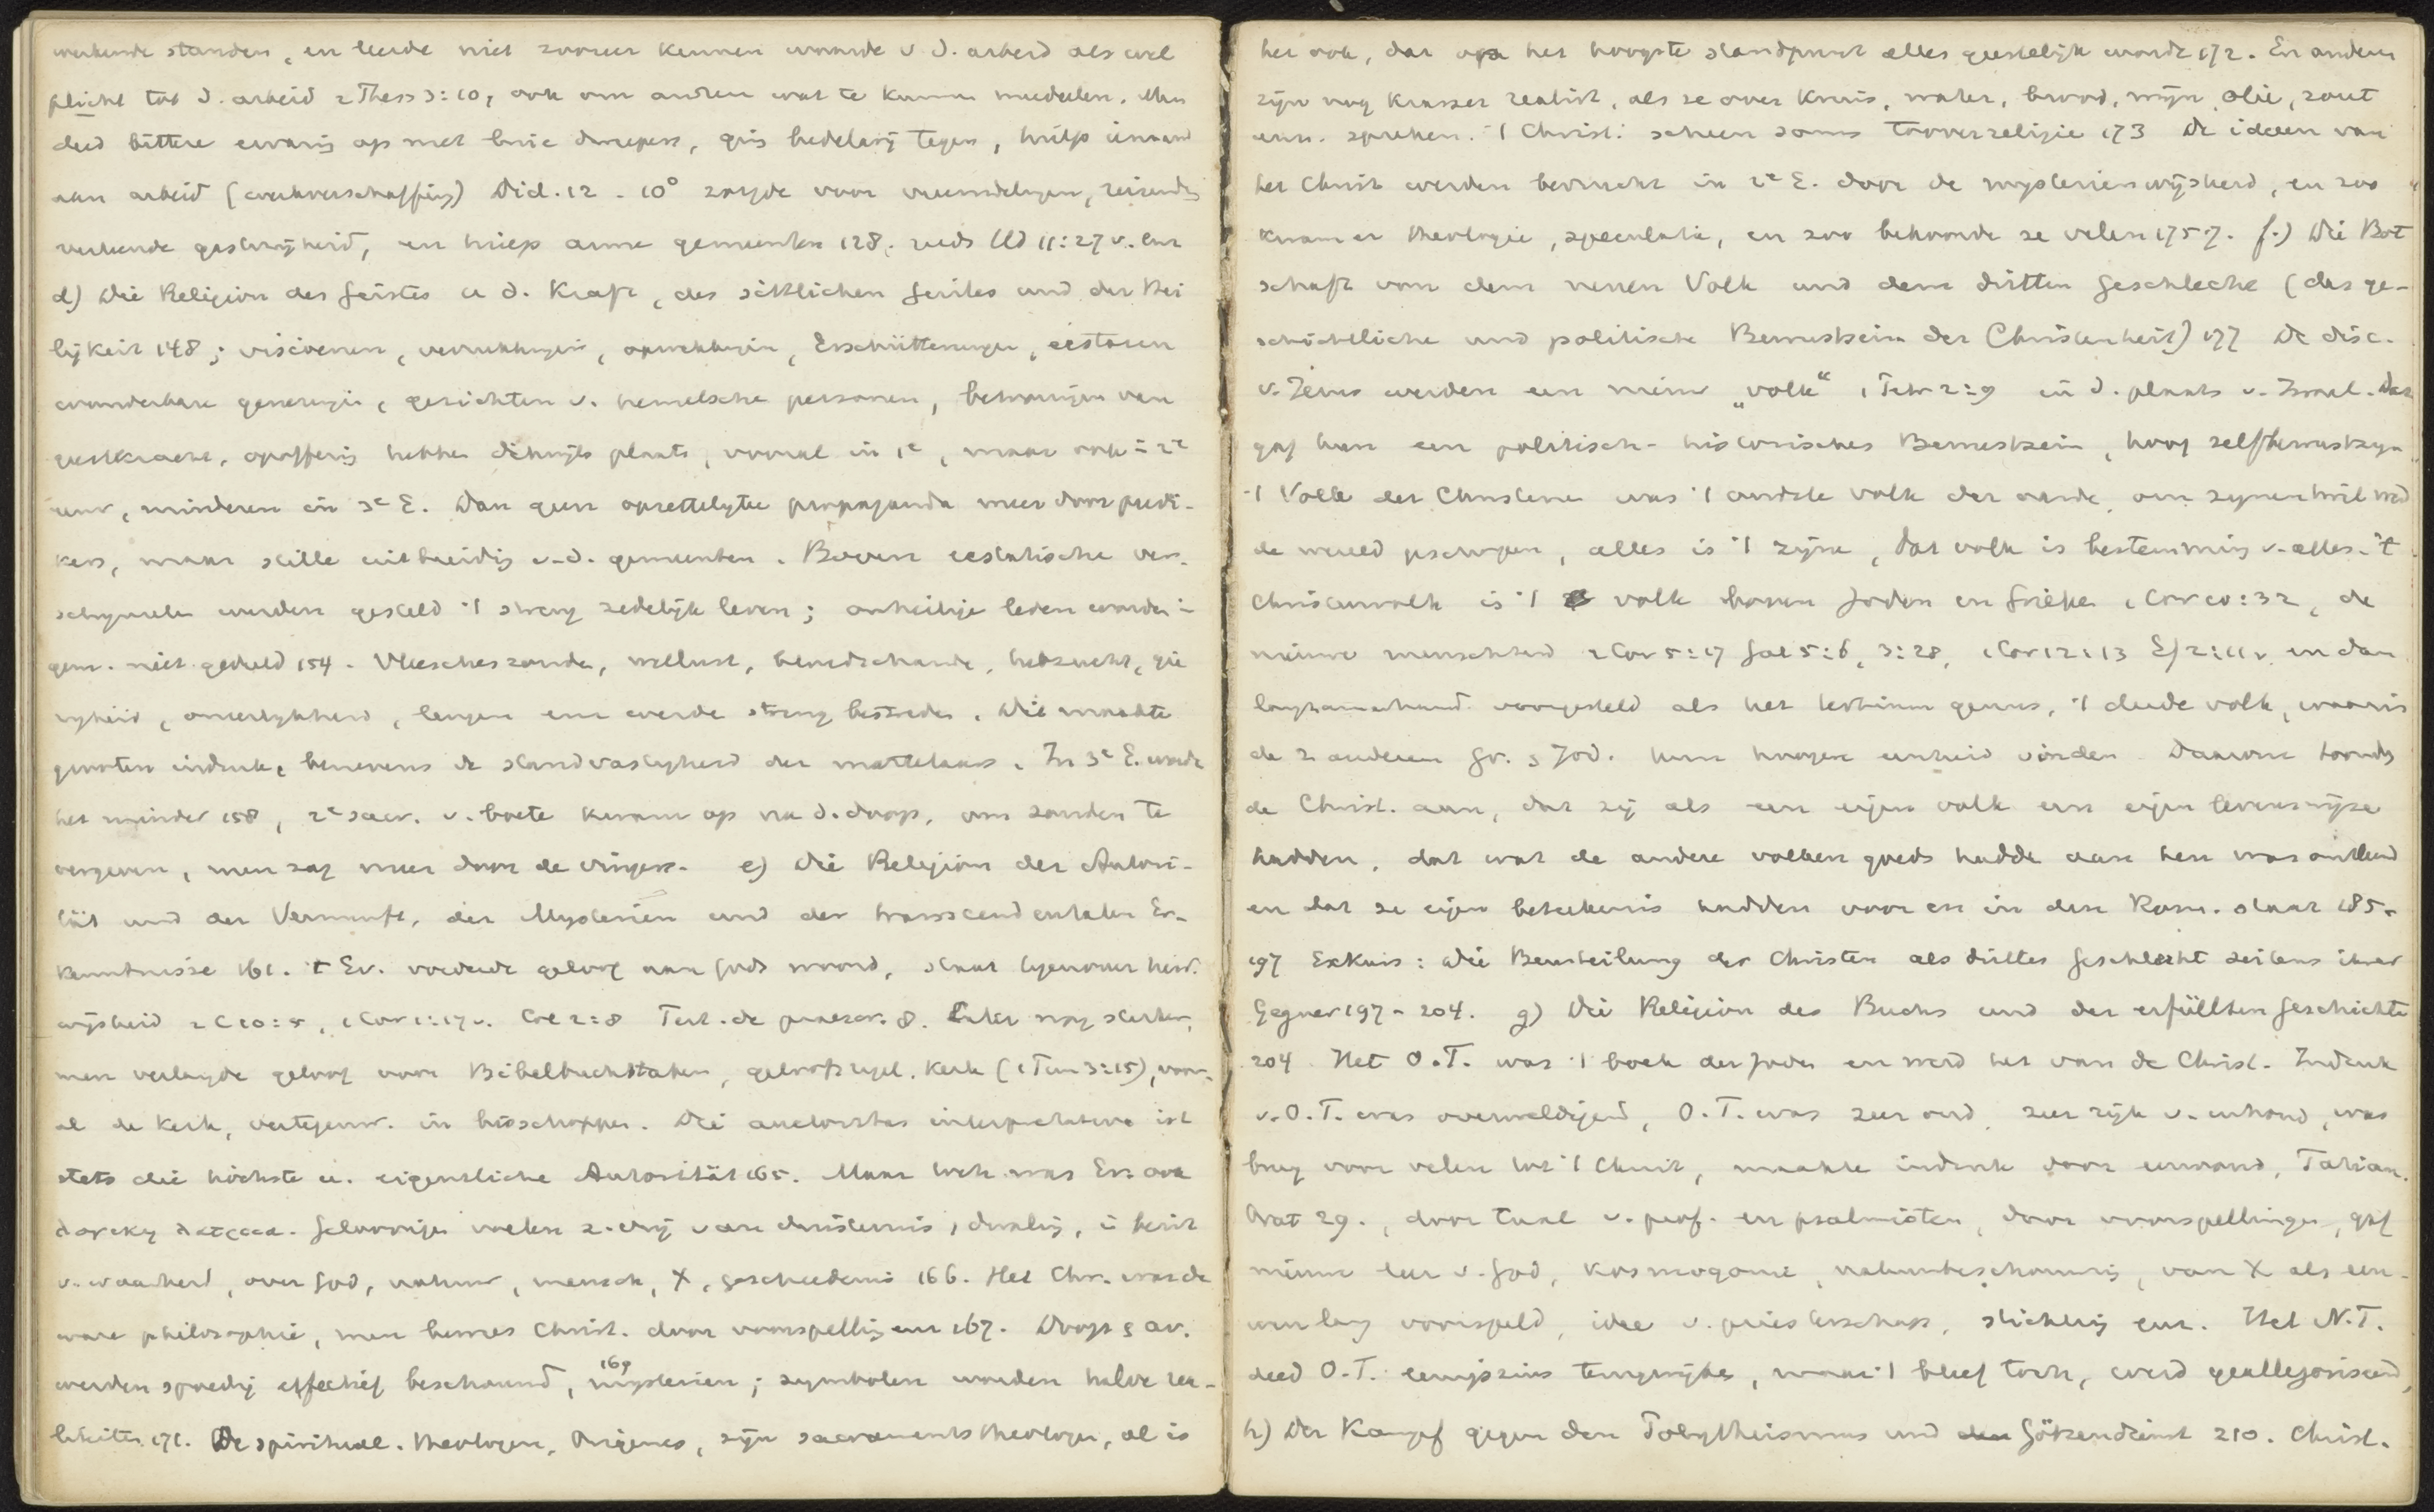 werkende standen, en leerde niet zoozeer kennen waarde v. d. arbeid als wel
plicht tot d. arbeid 2 Thess 3:10, ook om andren wat te kunnen mededeelen. Men
deed bittere ervaring op met luie , ging bedelarij tegen, hielp iemand
aan arbeid (werkverschaffing) Did. 12 - 10° zorgde voor vreemdelingen, reizenden
verleende gastvrijheid, en hielp arme gemeenten 128. reeds Hd 11:27 v. enz
d) Die Religion des Geistes u d. Kraft, des sittlichen Geistes und der Hei
ligkeit 148; visioenen, verrukkingen, opwekkingen, Erschütterungen, ecstasen
wonderbare genezingen, gezichten v. hemelsche personen, betooningen van
geestkracht, opoffering hebben dikwijls plaats, vooral in 1e, maar ook in 2e
eeuw, minderen in 3e E. Dan geen opzettelijke propaganda meer door predi-
kers, maar stille uitbreiding v. d. gemeenten. Boven ecstatische ver-
schijnselen werden gesteld 't streng zedelijk leven; onheilige leden worden in
gem. niet geduld 154. Vleescheszonde, wellust, bloedschande, hebzucht, gie
righeid, oneerlijkheid, leugen enz werde streng bestreden. Die maakte
grooten indruk, benevens de standvastigheid der martelaars. In 3e E. werde
het minder 158, 2e sacr. v. boete kwam op na d. doop, om zonden te
vergeven, men zag meer door de vingers. e) Die Religion der Autori-
tät und der Vernunft, der Mysterien und der transscendentalen Er-
kenntnisse 161. 't Ev. vorderde geloof aan Gods woord, staat tegenover heid.
wijsheid 2 C 10:5, 1 Cor 1:17 v. Col 2:8 Tert. de praescr. 8. Later nog sterker,
men verlangde geloof voor Bibelbuchstaben, geloofsregel, Kerk (1 Tim 3:15), voor-
al de Kerk, vertegenw. in bisschoppen. Die auctoritas interpretativa ist
stets die höchste u. eigentliche Autorität 165. Maar toch was Ev. ook
. Geloovigen voelen z. vrij van duisternis, dwaling, in bezit
v. waarheid, over God, natuur, mensch, X, geschiedenis 166. Het Chr. was de
ware philosophie, men bewees Christ. door voorspelling enz 167. Doop & av.
werden spoedig effectief beschouwd, mysterien 169; symbolen worden halve rea-
liteiten 171. De spiritual. theologen, Origenes, zijn sacramentstheologen, al is
het ook, dat op het hoogste standpunt alles geestelijk wordt 172. En andren
zijn nog krasser realist, als ze over Kruis, water, brood, wijn, olie, zout
enz. spreken. 't Christ. scheen soms tooverreligie 173 De ideeen van
het Christ werden bevrucht in 2e E. door de mysterienwijsheid, en zoo
kwam er theologie, speculatie, en zoo bekoorde ze velen 175-7. f.) Die Bot
schaft von dem neuen Volk und dem dritten Geschlecht (das ge-
schichtliche und politische Bewusstsein der Christenheit) 177 De disc.
v. Jezus werden een nieuw „volk“ 1 Petr 2:9 in d. plaats v. Israel. Dat
gaf hun een politisch-historisches Bewustsein, hoog zelfbewustzijn
't Volk der Christenen was 't oudste volk der aarde, om zijnentwil werd
de wereld geschapen, alles is 't zijne, dat volk is bestemming v. alles. 't
Christenvolk is 't volk boven Joden en Grieken 1 Cor 10:32, de
nieuwe menschheid 2 Cor 5:17 Gal 5:6, 3:28, 1 Cor 12:13 Ef 2:11 v. en dan
langzamerhand voorgesteld als het tertium genus, 't derde volk, waarin
de 2 anderen Gr. & Jod. hun hoogere eenheid vinden Daarom toonden
de Christ. aan, dat zij als een eigen volk een eigen levenswijze
hadden, dat wat de andere volken goeds hadde aan hen was ontleend
en dat ze eigen beteekenis hadden voor en in den Rom. staat 185-
197 Exkurs: Die Beurteilung der Christen als drittes Geschlecht seitens ihrer
Gegner 197-204. g) Die Religion des Buchs und der erfüllten Geschichte
204 Het O.T. was 't boek der Joden en werd het van de Christ. Indruk
v. O.T. was overweldigend, O.T. was zeer oud, zeer rijk v. inhoud, was
brug voor velen tot 't Christ, maakte indruk door eenvoud, Tatian.
Orat 29., door taal v. prof. en psalmisten, door voorspellingen, gaf
nieuwe leer v. God, kosmogonie, natuurbeschouwing, van X als een-
wen lang voorspeld, idee v. priesterschap, stichting enz. Het N.T.
deed O.T. eenigszins terugwijken, maar 't bleef toch, werd geallegoriseerd,
h) Der Kampf gegen den Polytheismus und Götzendienst 210. Christ.